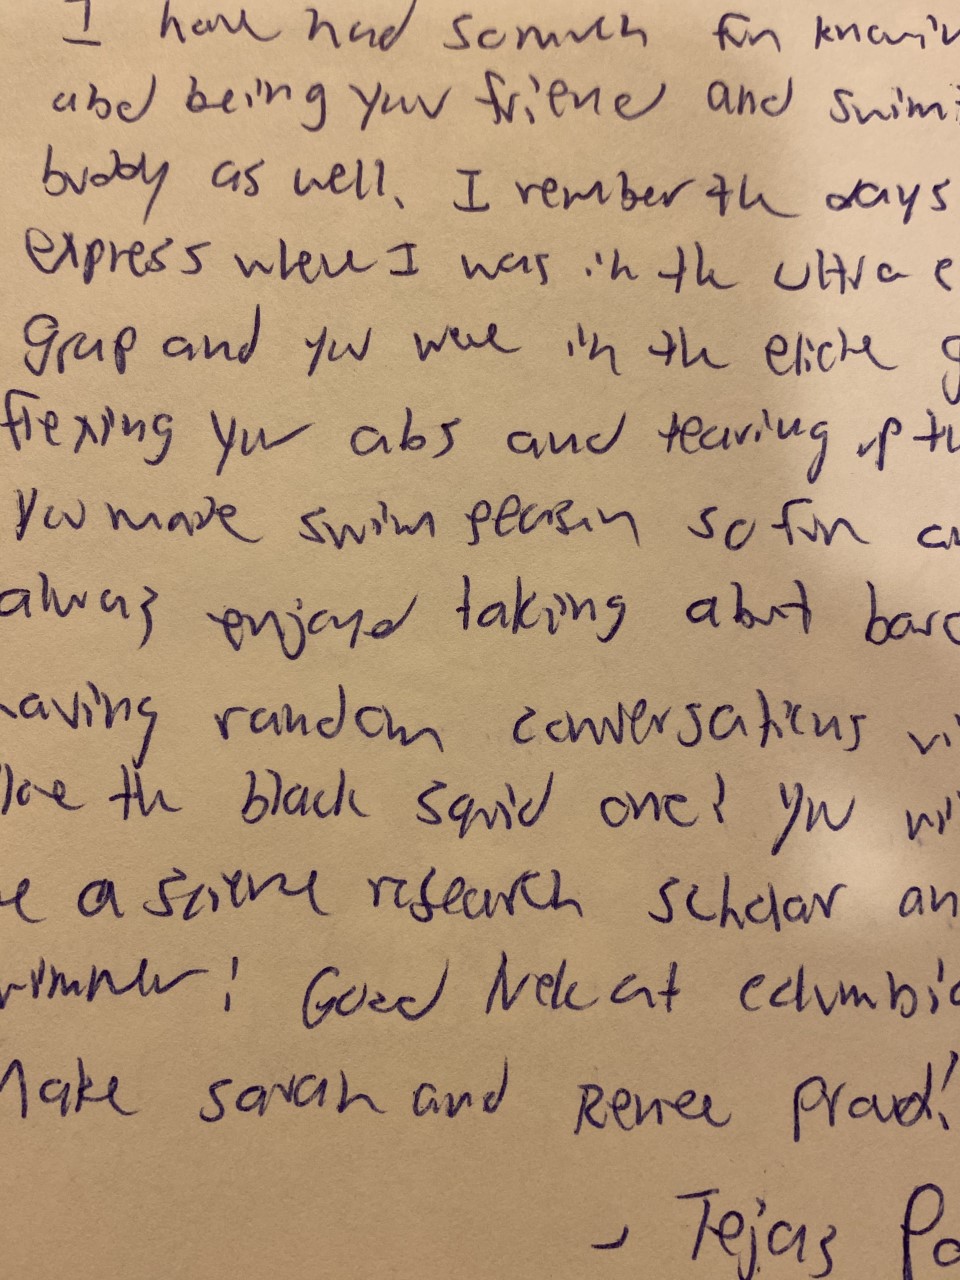 I have had somuch fun knowin
abd being your friend and swimi
buddy as well. I rember the days
express where I was in the ultra e
Group and you were in the eliete g
flexing your abs and tearing up th
You made swim season so fun an
always enjoyed talking about bar
having random conversations vi
like the black squid one! You wi
be a science research scholar an
swimmer! Good luck at columbia
Make sarah and Renee proud!
- Tejas Pa